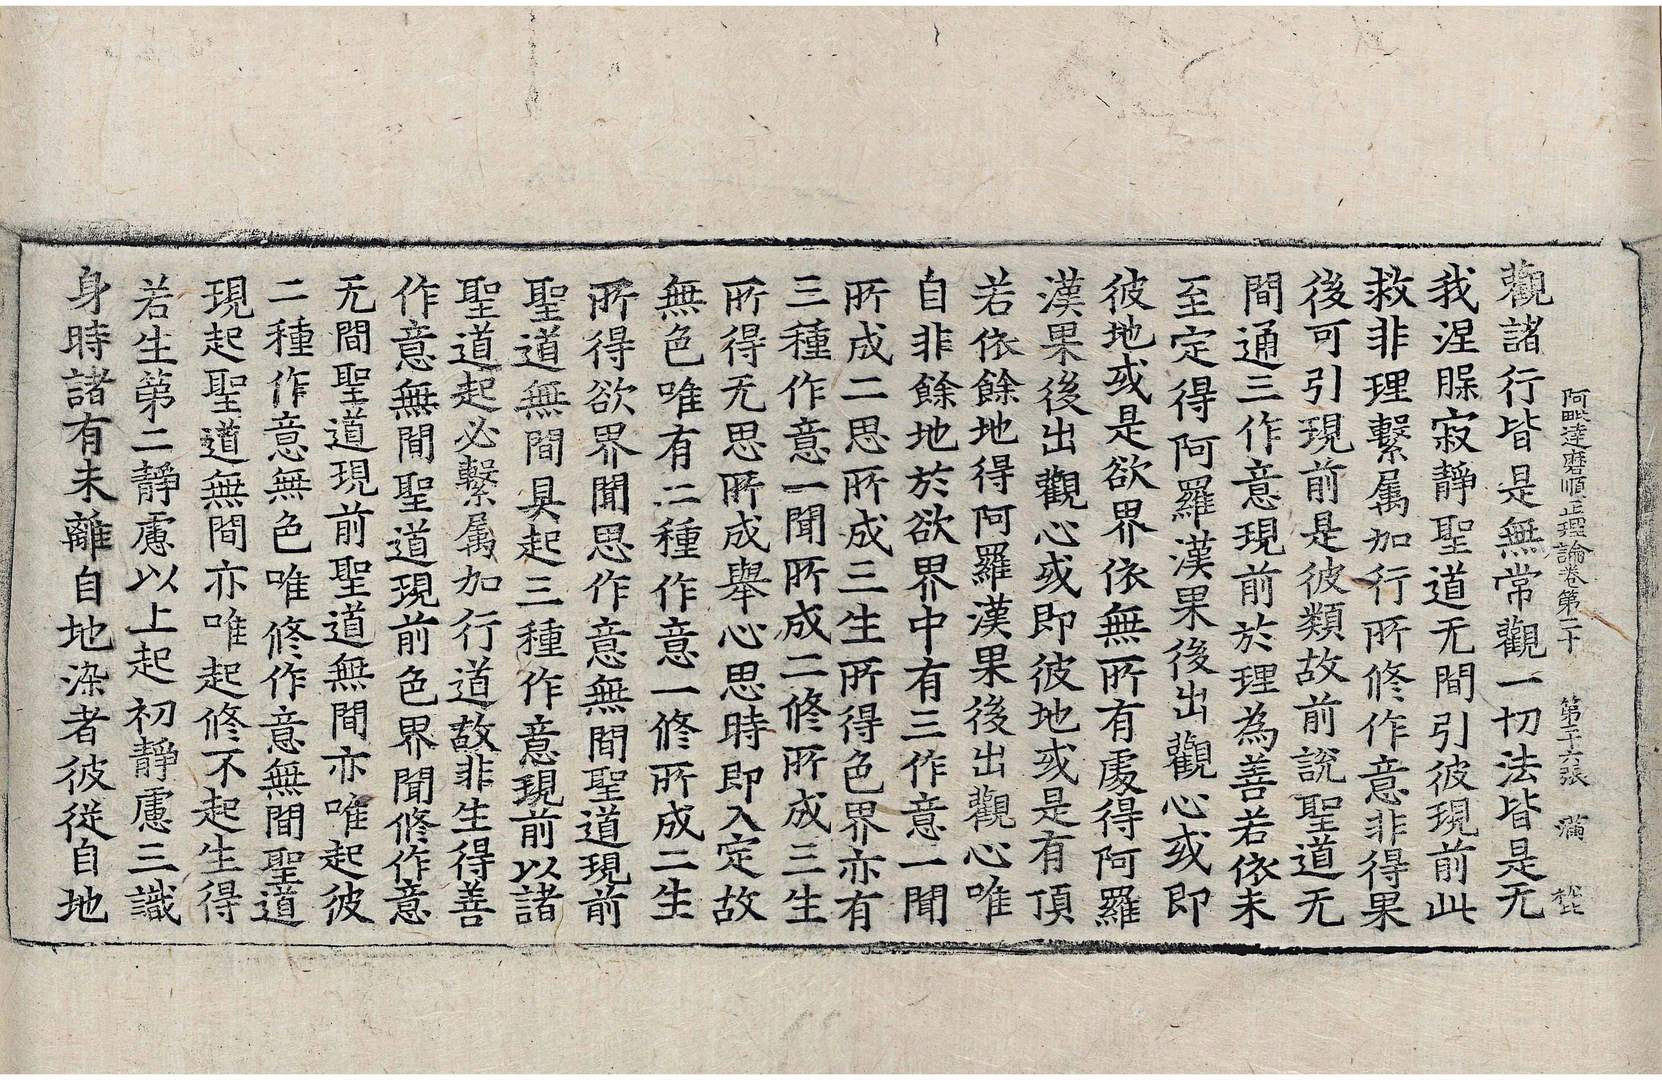 阿毗達磨順正理論卷第二十 第十六張 滿 松比
觀諸行皆是無常觀一切法皆是无
我涅槃寂靜聖道无間引彼現前此
救非理繫属加行所修作意非得果
後可引現前是彼類故前說聖道无
間通三作意現前於理為善若依未
至定得阿羅漢果後出觀心或即
彼地或是欲界依無所有處得阿羅
漢果後出觀心或即彼地或是有頂
若依餘地得阿羅漢果後出觀心唯
自非餘地於欲界中有三作意一聞
所成二思所成三生所得色界亦有
三種作意一聞所成二修所成三生
所得无思所成舉心思時即入定故
無色唯有二種作意一修所成二生
所得欲界聞思作意無間聖道現前
聖道無間具起三種作意現前以諸
聖道起必繫属加行道故非生得善
作意無間聖道現前色界聞修作意
无間聖道現前聖道無間亦唯起彼
二種作意無色唯修作意無間聖道
現起聖道無間亦唯起修不起生得
若生第二靜慮以上起初靜慮三識
身時諸有未離自地染者彼從自地